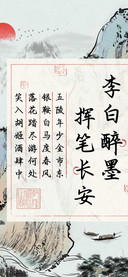 李白醉墨
挥笔长安
五陵年少金市东
银鞍白马度春风
落花踏尽游何处
笑入胡姬酒肆中